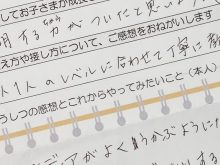 してお子さまが成長
明する力がついたと思いま
え方や接し方について、ご感想をおねがいします
人1人のレベルに合わせて丁寧に
うしつの感想とこれからやってみたいこと(本人)
アがよく浮かぶように